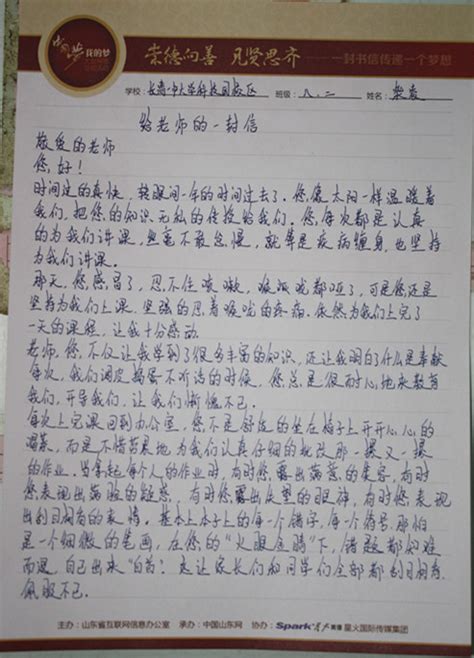 中国梦
我的梦
崇德向善 见贤思齐 一封书信传递一个梦想
学校：长清中大学科技园校区 班级：八.二 姓名：
给老师的一封信
敬爱的老师
您好！
时间过的真快，转眼间一年的时间过去了。您像太阳一样温暖着
我们，把您的知识无私的传授给我们。您每次都是认真
的为我们讲课，丝毫不敢怠慢，就算是疾病缠身，也坚持
为我们讲课。
那天，您感冒了，忍不住咳嗽，喉咙都哑了，可是您还是
坚持为我们上课，坚强的忍着喉咙的疼痛，依然为我们上完了
一天的课程，让我十分感动。
老师，您不仅让我学到了很多丰富的知识，还让我明白了什么是奉献
每次，我们调皮捣蛋不听话的时候，您总是很耐心地来教育
我们，开导我们，让我们惭愧不已。
每次上完课回到办公室，您不是舒服的坐在椅子上开开心心的
喝茶，而是不惜劳累地为我们认真仔细的批改那一摞又一摞
的作业，当拿起每个人的作业时，有时您露出满意的笑容，有时
您表现出满脸的疑惑，有时您露出失望的眼神，有时您表现
出刮目相看的表情。基本上本子上的每一个错字，每一个符号，那怕
是一个细微的笔画，在您的“火眼金睛”下，错题都知难
而退，自己出来“自首”。这让家长们和同学们全部都刮目相看，
佩服不已。
主办：山东省互联网信息办公室 承办：中国山东网 协办：Spark 星火国际传媒集团